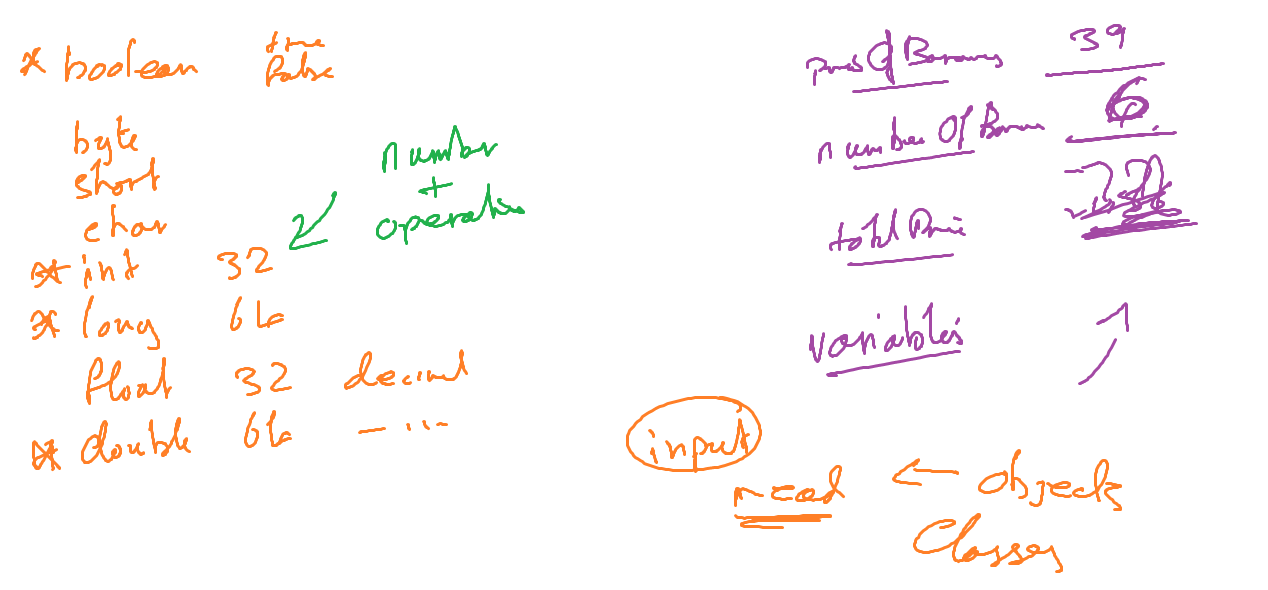 * boolean true
false
byte
short
char
* int 32
* long 64
float 32 decimal
* double 64 - ...
number
+
operation
39
number Of 6
total Price
variables
input
read ← objects
Classes